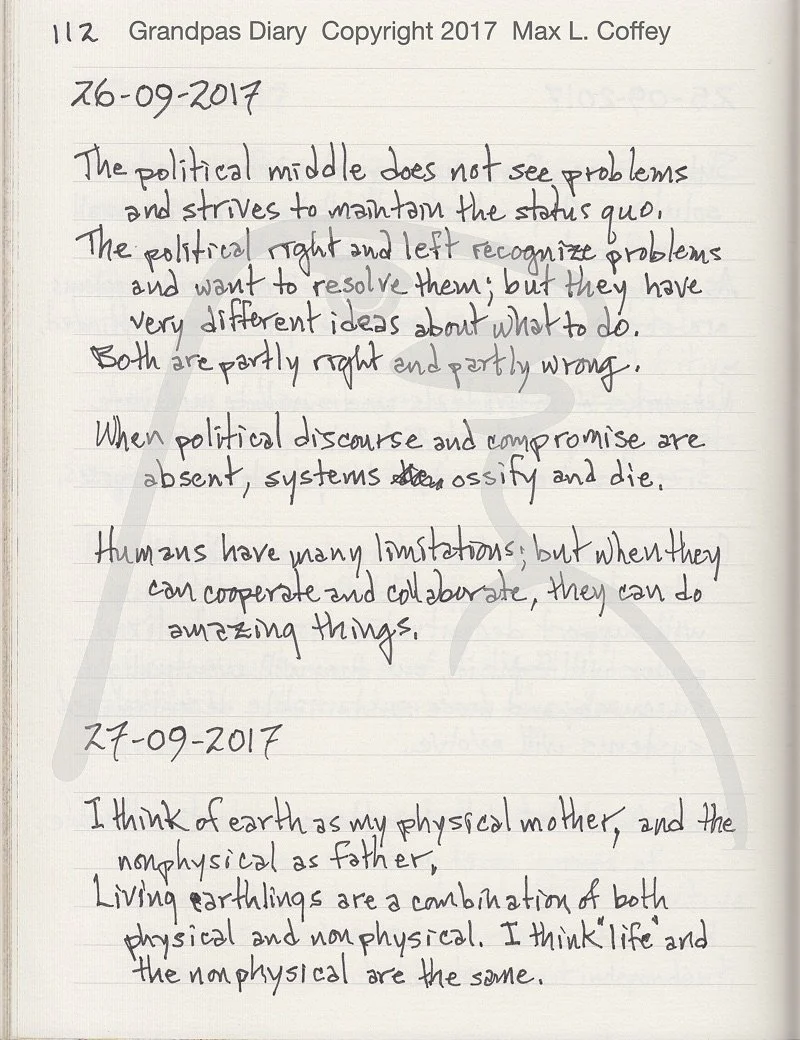 112 Grandpas Diary Copyright 2017 Max L. Coffey
26-09-2017
The political middle does not see problems
and strives to maintain the status quo.
The political right and left recognize problems
and want to resolve them; but they have
very different ideas about what to do.
Both are partly right and partly wrong.
When political discourse and compromise are
absent, systems ossify and die.
Humans have many limitations; but when they
can cooperate and collaborate, they can do
amazing things.
27-09-2017
I think of earth as my physical mother, and the
nonphysical as father,
Living earthlings are a combination of both
physical and nonphysical. I think "life" and
the nonphysical are the same.